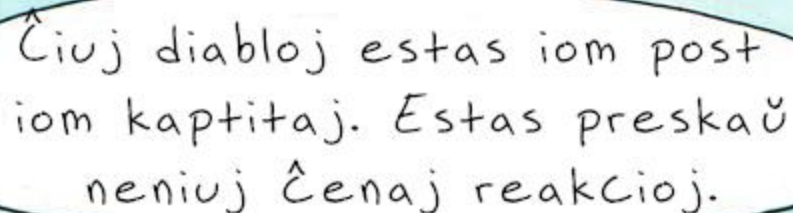 Ĉiuj diabloj estas iom post
iom kaptitaj. Estas preskaŭ
neniuj ĉenaj reakcioj.